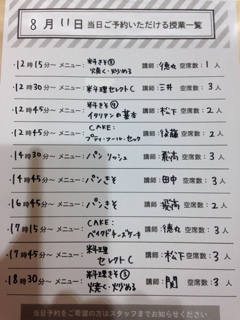 8月11日 当日ご予約いただける授業一覧
・12時15分〜 メニュー：料きそ③ 講師：徳丸 空席数：1人
焼く・炒める
・12時30分〜 メニュー：料理セレクトC 講師：三井 空席数：3人
・12時45分〜 メニュー：料きそ④ 講師：松下 空席数：2人
イタリアンの基本
・12時45分〜 メニュー：CAKE： 講師：後藤 空席数：2人
・14時30分〜 メニュー：パン リッシュ 講師： 空席数：3人
・14時45分〜 メニュー：パンきそ 講師：田中 空席数：3人
・16時45分〜 メニュー：パンきそ 講師： 空席数：2人
・17時15分〜 メニュー：CAKE： 講師：徳丸 空席数：3人
ベイクドチーズケーキ
・17時45分〜 メニュー：料理 講師：松下 空席数：3人
セレクトC
・18時30分〜 メニュー：料理きそ③ 講師：関 空席数：3人
焼く・炒める
当日予約をご希望の方はスタッフまでお知らせください